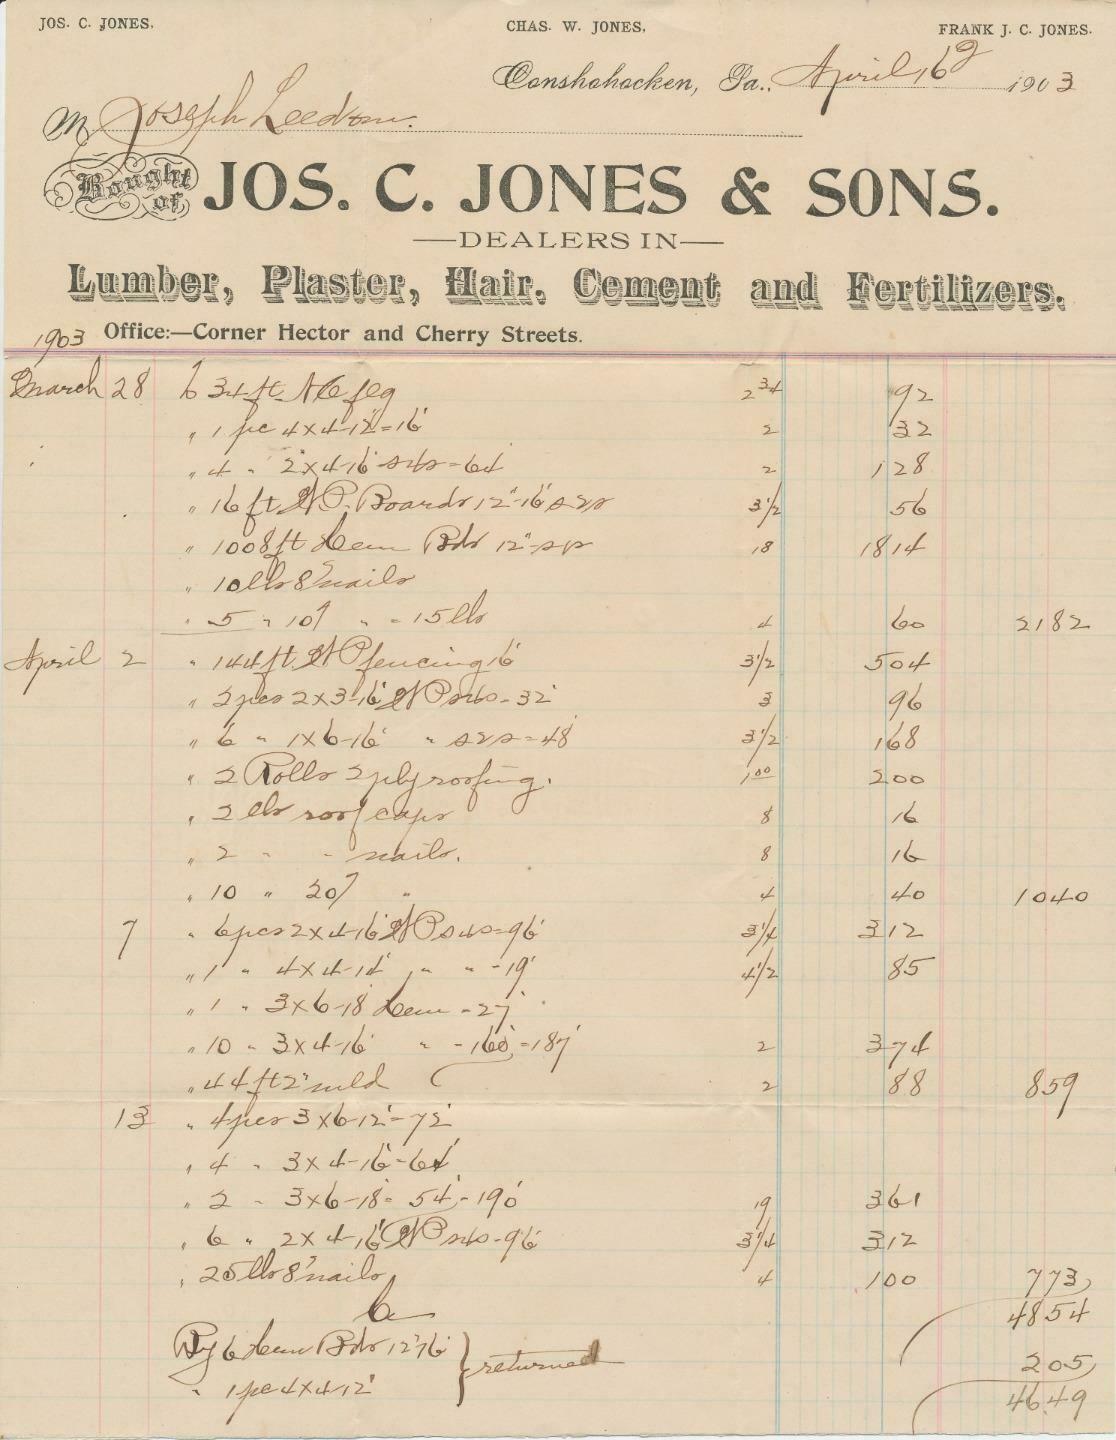 JOS. C. JONES. CHAS. W. JONES. FRANK J. C. JONES.
Conshohocken, Pa., April 16 1903
M Joseph Leedom.
Bought of JOS. C. JONES & SONS.
DEALERS IN
Lumber, Plaster, Hair, Cement and Fertilizers.
1903 Office:—Corner Hector and Cherry Streets.
March 28 34 ft NC flg 2 3/4 92
" 1 pc 4x4-12'=16' 2 32
" 4 " 2x4-16' s4s=64 2 128
" 16 ft W.P. Boards 12"-16' s2s 3 1/2 56
" 1008 ft Hem Bds 12" 18 1814
" 10 lbs 8 nails
" 5 " 10 " = 15 lbs 4 60 2182
April 2 " 144 ft WP fencing 16' 3 1/2 504
" 2 pcs 2x3-16' WP s4s = 32' 3 96
" 6 " 1x6-16' " s2s=48' 3 1/2 168
" 2 Rolls 2 ply roofing. 1 00 200
" 2 lbs roof caps 8 16
" 2 " " nails. 8 16
" 10 " 20 " 4 40 1040
7 " 6 pcs 2x4-16' WP s4s=96' 3 1/4 312
" 1 " 4x4-14' " " -19' 4 1/2 85
" 1 " 3x6-18' Hem = 27'
" 10 " 3x4-16' " -160'=187' 2 374
" 44 ft 2" mld 2 88 859
13 " 4 pcs 3x6-12'=72'
" 4 " 3x4-16'=64'
" 2 " 3x6-18'= 54'-190' 19 361
" 6 " 2x4-16' WP s4s-96' 3 1/4 312
" 25 lbs 8 nails 4 100 773
4854
By 6 Hem Bds 12"16'
returned 205
" 1 pc 4x4-12' 4649